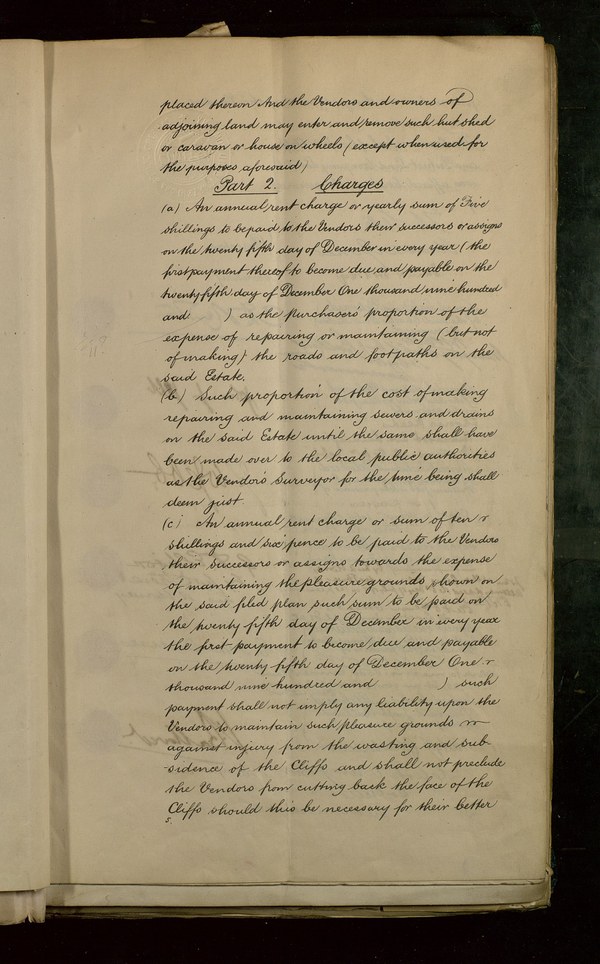 placed thereon And the Vendors and owners of
adjoining land may enter and remove such hut shed
or caravan or house on wheels (except when used for
the purposes aforesaid)
Part 2. Charges
(a) An annual rent charge or yearly sum of Five
shillings to be paid to the Vendors their successors or assigns
on the twenty fifth day of December in every year (the
first payment thereof to become due and payable on the
twenty fifth day of December One thousand nine hundred
and ) as the Purchasers' proportion of the
expense of repairing or maintaining (but not
of making) the roads and footpaths on the
said Estate.
(b) Such proportion of the cost of making
repairing and maintaining sewers and drains
on the said Estate until the same shall have
been made over to the local public authorities
as the Vendors Surveyor for the time being shall
deem just.
(c) An annual rent charge or sum of ten
shillings and six pence to be paid to the Vendors
their successors or assigns towards the expense
of maintaining the pleasure grounds shown on
the said filed plan such sum to be paid on
the twenty fifth day of December in every year
the first payment to become due and payable
on the twenty fifth day of December One
thousand nine hundred and ) such
payment shall not imply any liability upon the
Vendors to maintain such pleasure grounds
against injury from the wasting and sub-
-sidence of the Cliffs and shall not preclude
the Vendors from cutting back the face of the
Cliffs should this be necessary for their better
5.